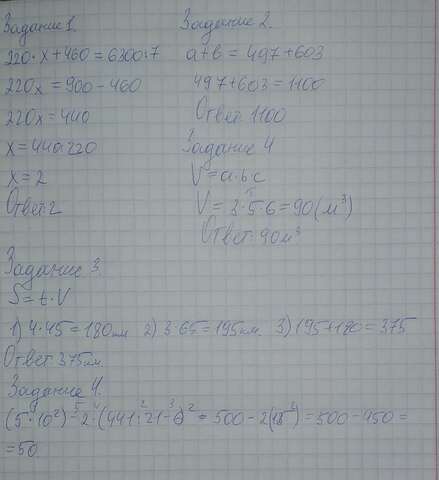 Задание 1.
220·x+460=6300:7
220x=900-460
220x=440
x=440:220
x=2
Ответ: 2
Задание 2.
a+b=497+603
497+603=1100
Ответ 1100
Задание 4
V=a·b·c
V=3·5·6=90(м³)
Ответ: 90м³
Задание 3.
S=t·V
1) 4·45=180км 2) 3·65=195км. 3) 195+180=375
Ответ 375км.
Задание 4.
(5·10²)-2·(441:21-6)²=500-2(15²)=500-450=
=50